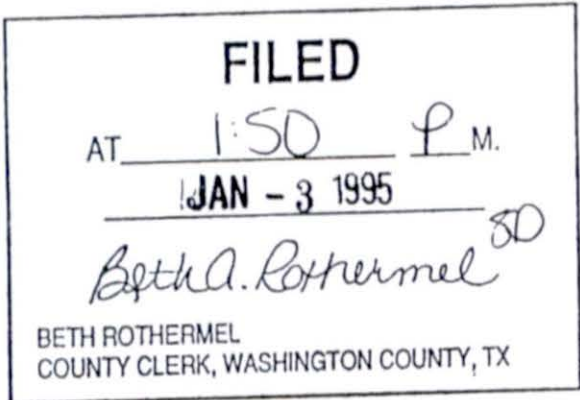 FILED
AT 1:50 P M.
JAN - 3 1995
Beth A. Rothermel
BETH ROTHERMEL
COUNTY CLERK, WASHINGTON COUNTY, TX